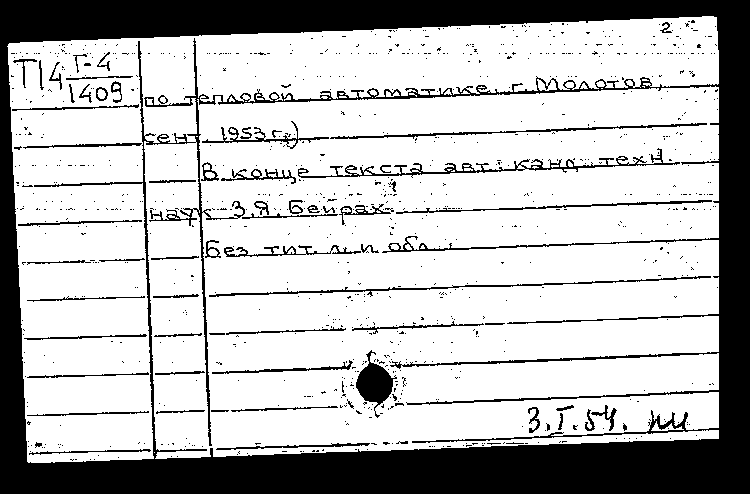 2
Т14 Г-4
1409
по тепловой автоматике. г. Молотов,
сент. 1953 г.)
В конце текста авт.: канд. техн.
наук З.Я. Бейрах.
Без тит. л. и обл.
3.I.54.